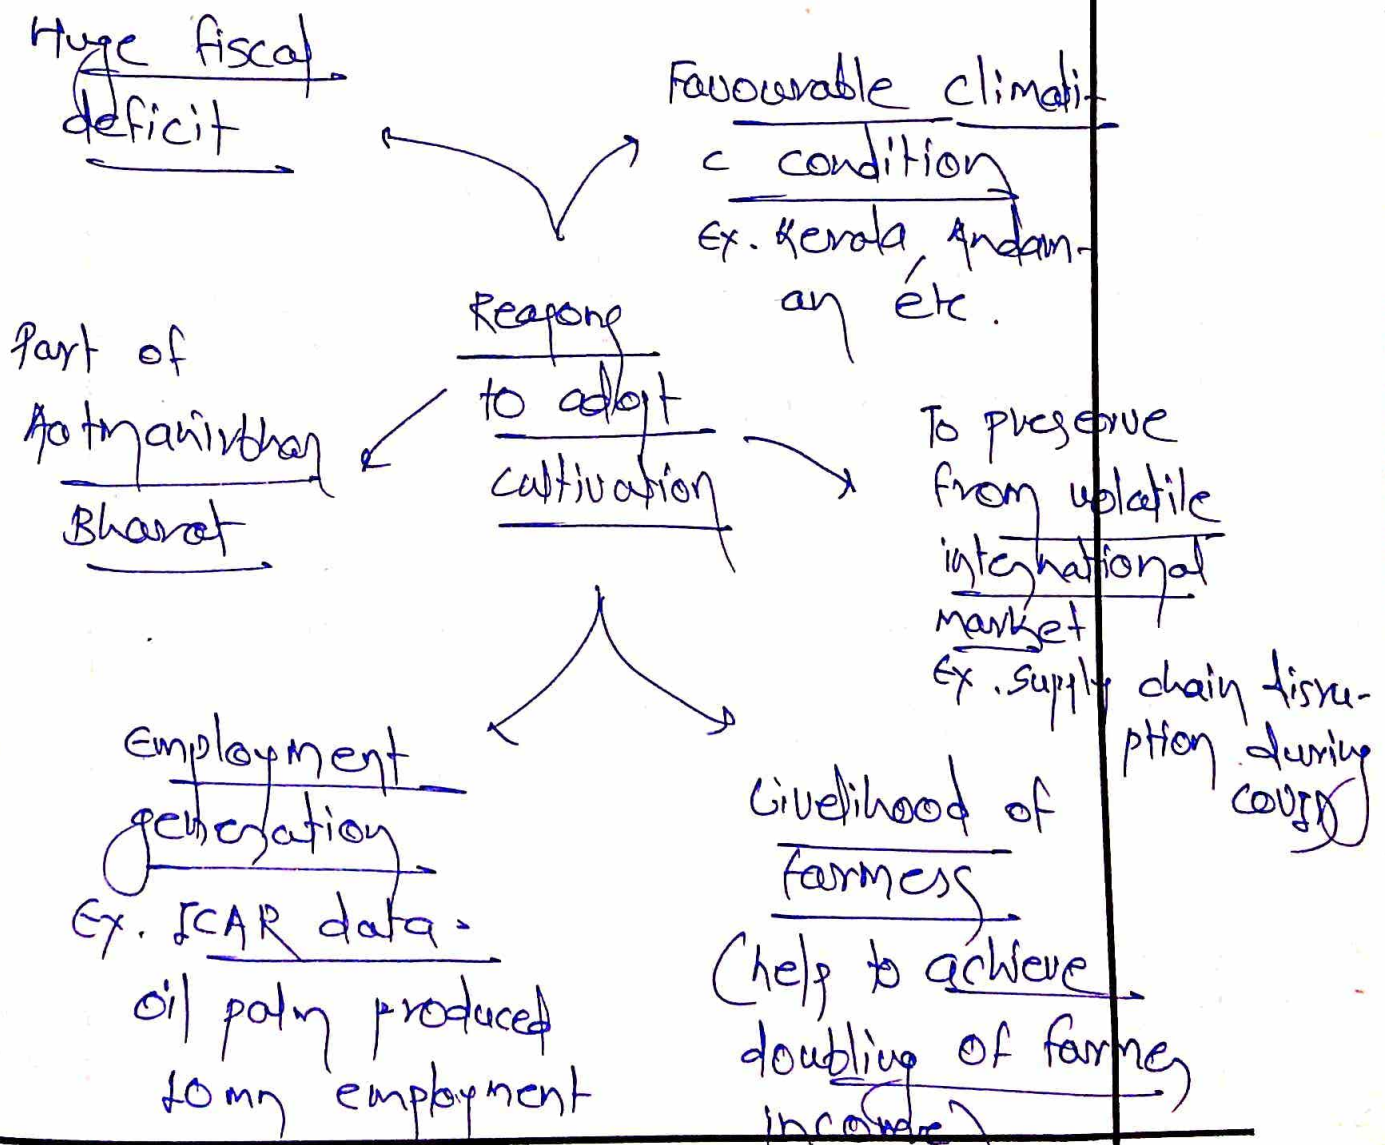 Huge fiscal
deficit
Favourable climati-
c condition
Ex. Kerala, Andam-
an etc.
Reasons
to adopt
cultivation
Part of
Aatmanirbhar
Bharat
To preserve
from volatile
international
market
Ex. supply chain disru-
ption during
COVID
Employment
generation
Ex. ICAR data -
oil palm produced
10 mn employment
Livelihood of
farmers
(help to achieve
doubling of farmer
income)